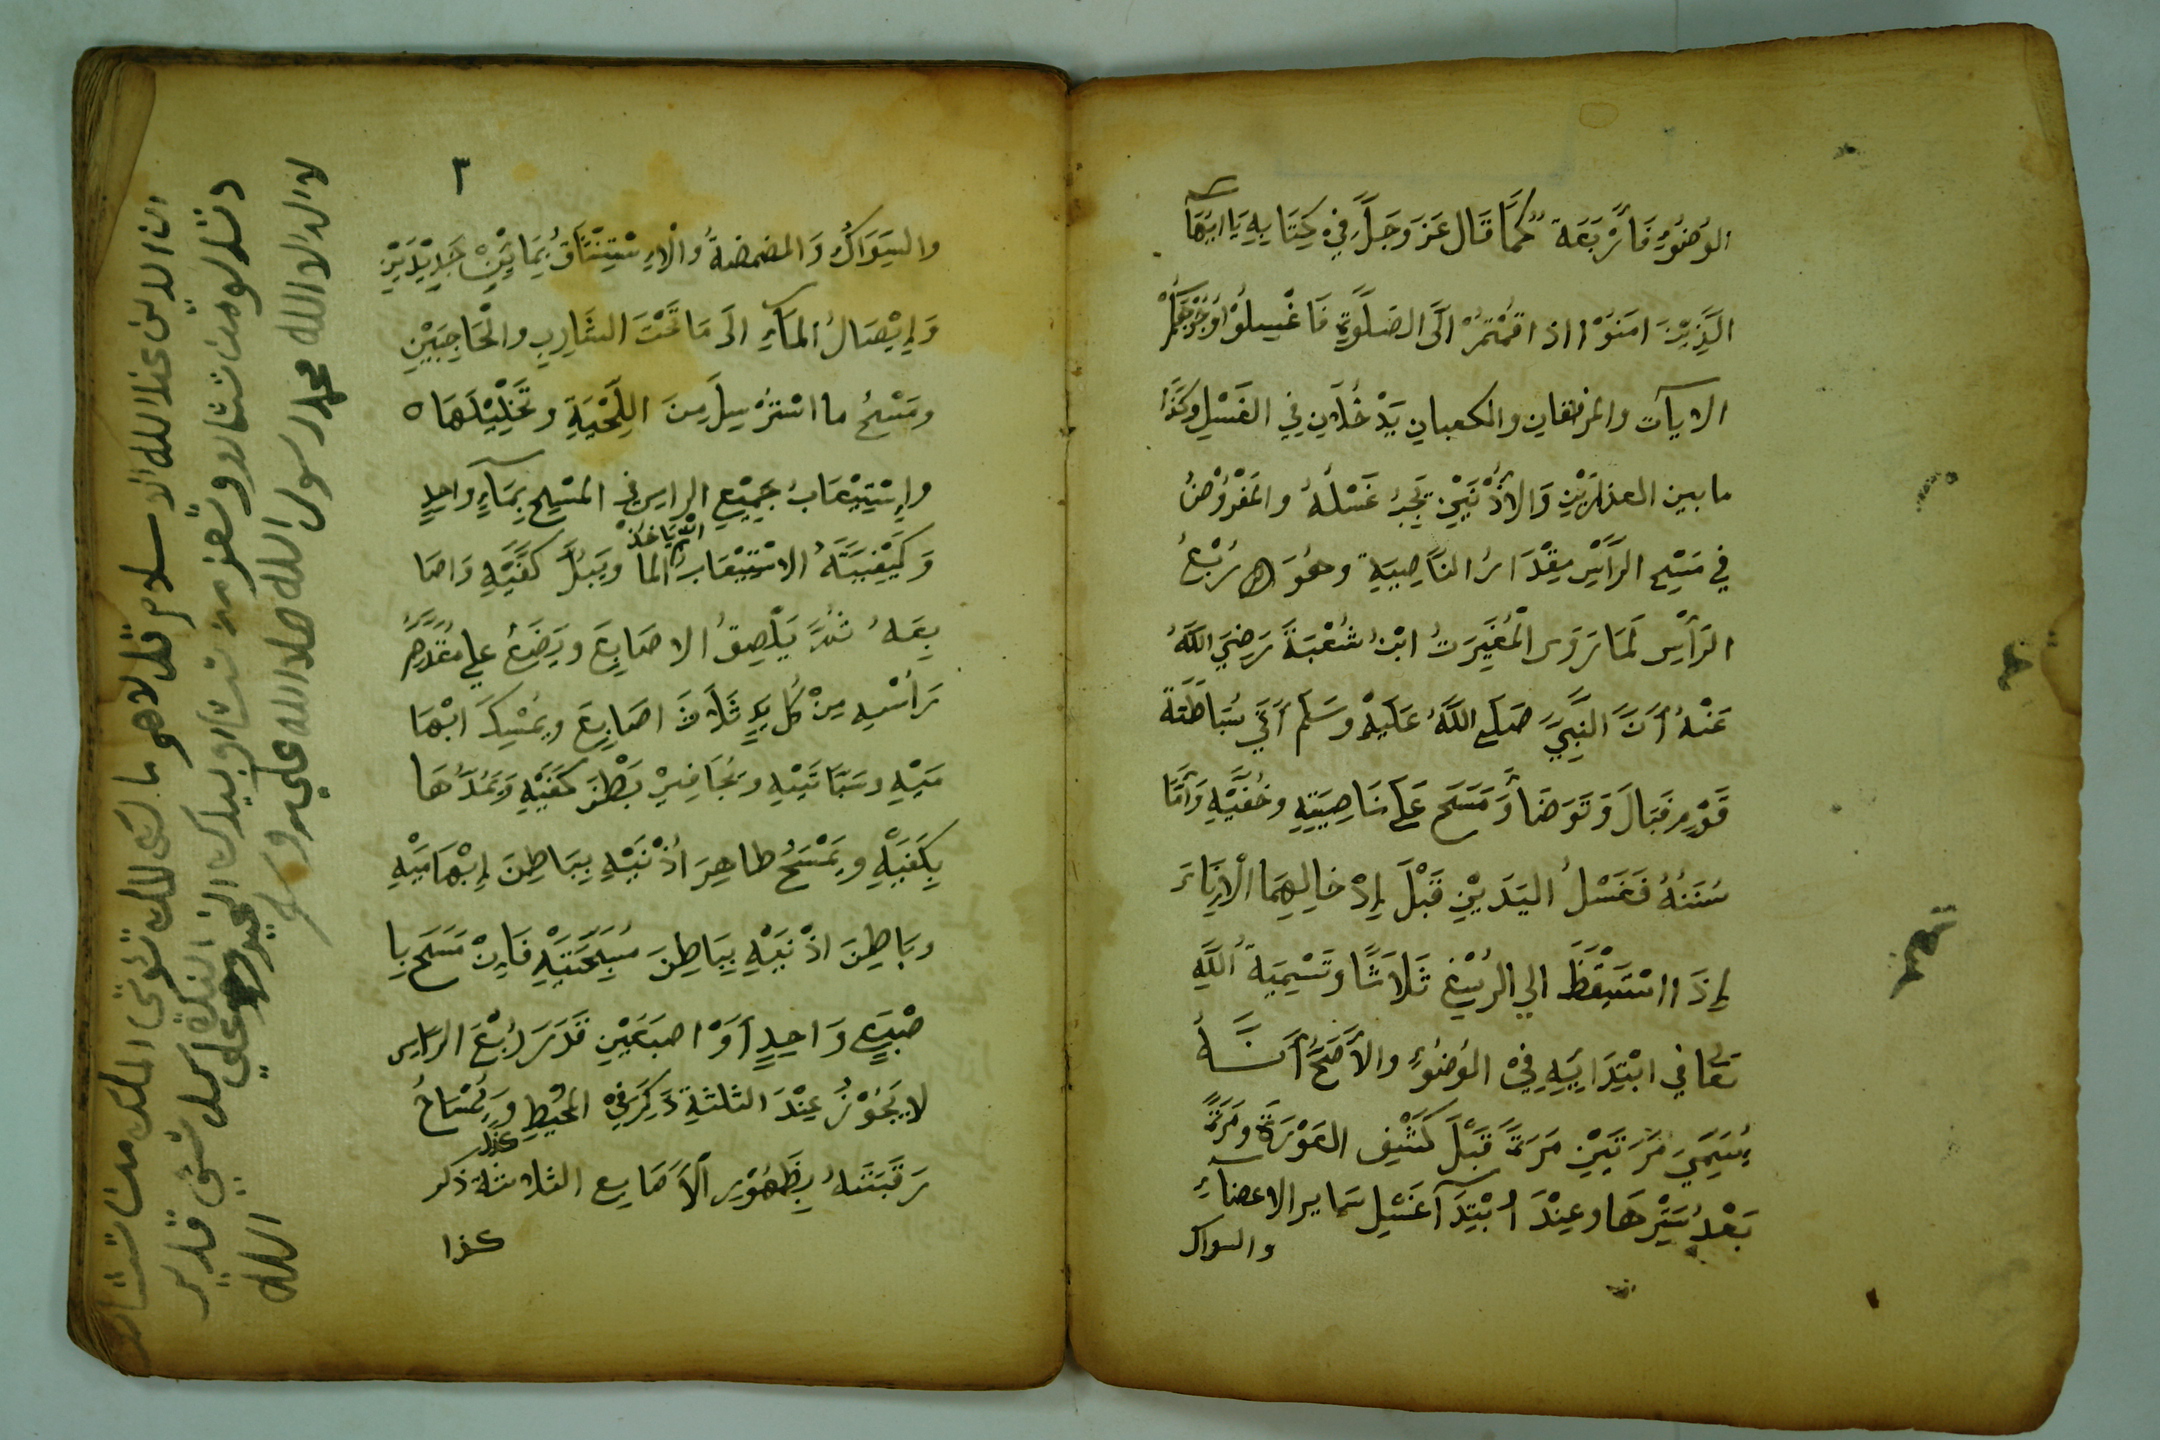 الوُضُوْءِ فَاَرْبَعَة كَمَا قَال عَزَ وَجَلَّ فِي كِتَابِهِ يَا اَيُّهَا
الَّذِيْنَ امَنَوُا اذا قمْتُمْ الَى الصَلَوةِ فَاغْسِلُوْا وُجُوْهَكُمْ
الايآت والمرفقان والكعبان يَدْخُلَانِ فِي الغَسْلِ وكَذَا
مابين العذارَيْنِ وَالاُذْنَيْنِ يَجِبُ غَسْلُهُ والمَفْرُوْضُ
فِي مَسْحِ الرَأسِ مِقْدَارُ النَاصِيَةِ وهُوَ رُبْعُ
الرَأْسِ لَمَا رَوَى الْمُغِيَرَتُ ابْنُ شُعْبَةَ رَضِيَ اللهُ
عَنْهُ أَنَّ النَّبِيَّ صَلَى اللهُ عَلَيْهِ وسَلَم اَتَى سُبَاطَةَ
قَوْمٍ فَبَالَ وَتَوَضَأ وَمَسَحَ عَلَى نَاصِيَتِهِ وخُفَّيْهِ وَاَمَّا
سُنَنُهُ فَغَسْلُ اليَدَيْنِ قَبْلَ اِدْخَالِهِمَا الْاِنَاءَ
اِذَا اسْتَيْقَظَ الي الرُسْغِ ثَلَاثًا وتَسْمِيَةُ اللهِ
تعَا في ابْتِدَائِهِ فِيْ الوُضِوُءِ والأصَحُّ أَنَّهُ
يُسَمِّيَ مَرَّتَيْنِ مَرَةً قَبْلَ كَشْفِ العَوْرَةِ ومَرَةً
بَعْدَ سَتْرِهَا وعِنْدَ اُبْتِدَآ غَسْلِ سَاير الاعضاءِ
والسواك
٣
والسِوَاكُ وَالمضمضةُ وَالْاِسْتِنْشَاقُ بِمَائَيْنِ جَدِيْدَيْنِ
وَاِيْصَالُ المَآءِ اِلَى مَا تَحْتَ الشَارِبِ والْحَاجِبَيْنِ
ومَسْحُ ما اسْتَرْسِلَ مِنَ اللِحْيَةِ وتَخْلِيْلَهَا ه
واِسْتِيْعَابُ جَمِيْعِ الراسِ فِى المَسْحِ بِمَآءٍ واحِدٍ
وَكَيْفِيَتَهُ الاسْتِيْعَابِ اَنْ يَاخُذَ الما ويَبُلَّ كَفَّيْهِ وَاصَا
بِعَهُ ثُمَّ يَلْصِقُ الاصَابِعَ ويَضَعُ علي مُقَدَّمِ
رَأسِهِ مِنْ كُلِّ يَدٍ ثَلَاثَ اصَابِعَ ويمْسِكَ ابْهَا
مَيْهِ وسَبَّابَتَيْهِ ويُجَافِيْ بَطْنَ كَفَّيْهِ وَيَمُدُّهَا
بِكَفَيْهِ ويَمْسَحُ ظاهِرَ اُذْنَيْهِ بِبَاطِنَ اِبْهَامَيْهِ
وبَاطِنَ اذْنَيْهِ بِبَاطِنَ مُسَبِّحَتَيْهِ فَاِنْ مَسَحَ بِا
صْبَعٍ وَاحِدٍ اَوْ اصبَعَيْنِ قَدَرَ رُبْعَ الرَاسِ
لا يَجُوْزُ عِنْدَ الثلثةِ ذَكِرَ فِيْ المُحْيطِ وَيُمْسَحُ
رَقَبَتَهُ بِظَهُوْرِ الْاَصَابِعِ الثلاثة ذكر
كذا
لا اله الا الله محمد رسول الله صلا الله علي و
ان الدين عند الله الاسلام قل لاهو ما تؤتى الملك من تشا